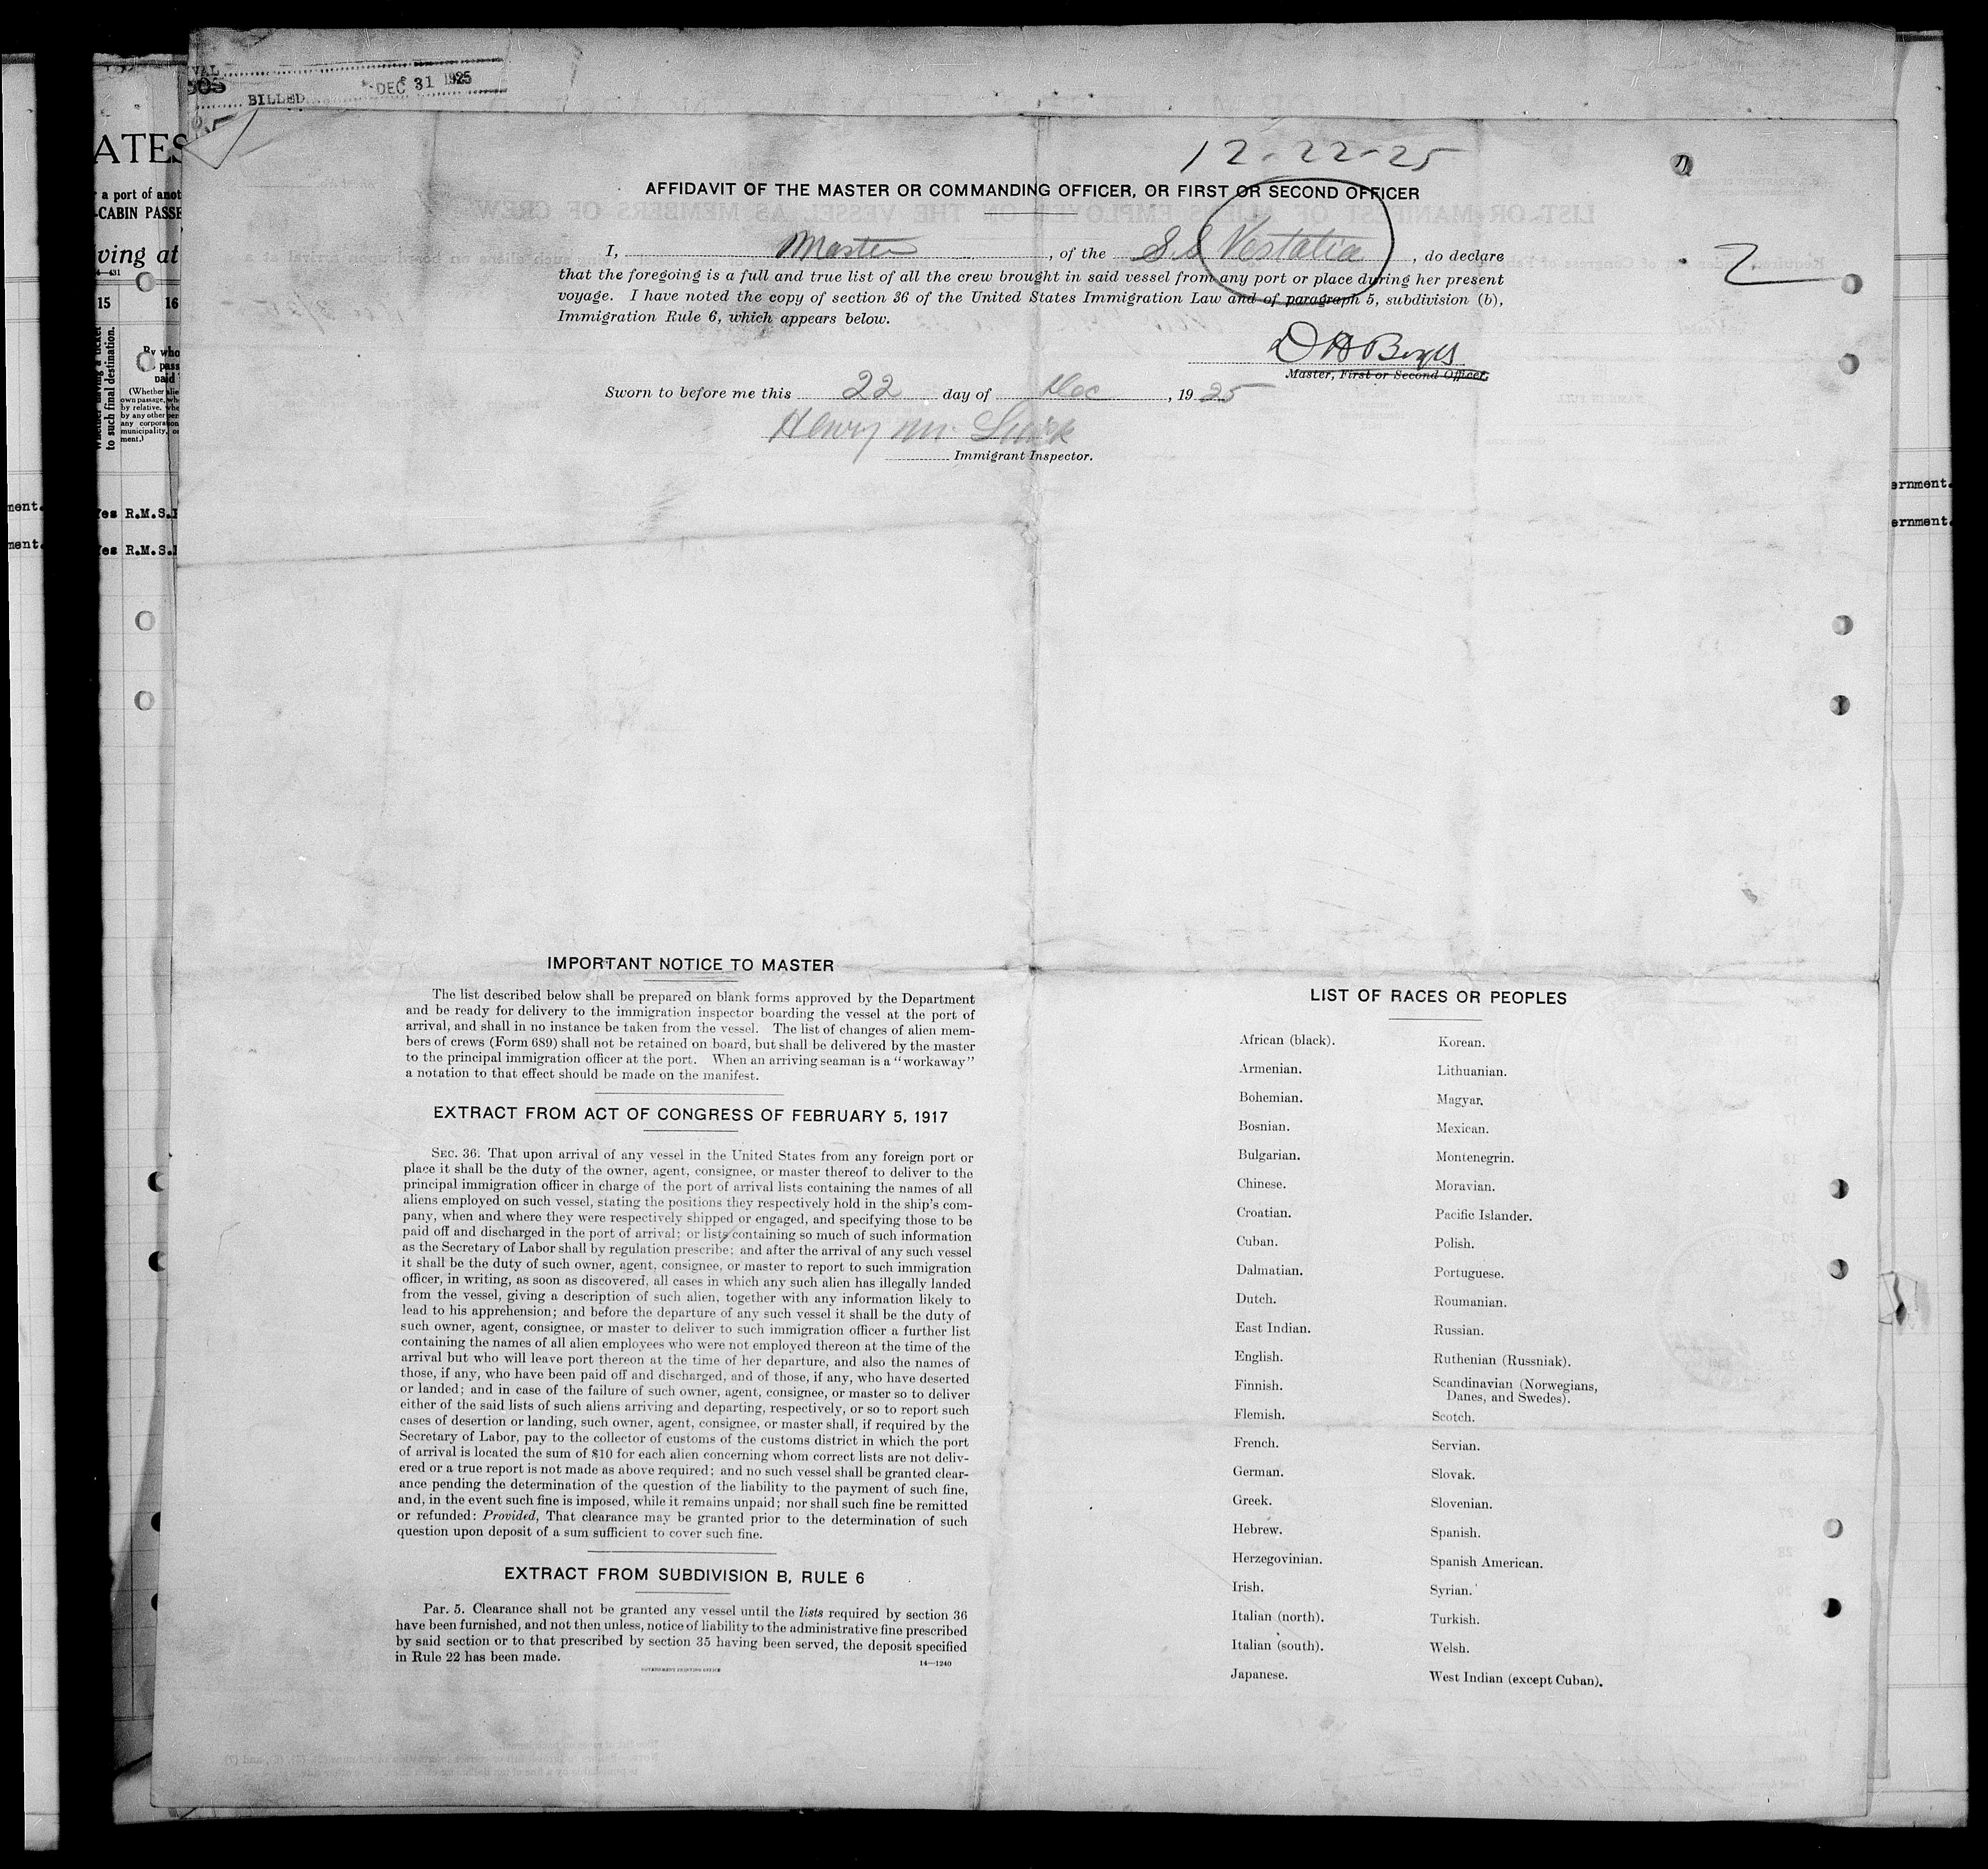 VAL
BILLED DEC 31 1925
ATES
r a port of anot
-CABIN PASSE
ving at
4-431
15 16
Whether having a ticket
to such final destination.
By who
pass
paid
(Whether alie
own passage, wh
by relative, whe
by any other per
any corporation
municipality, or
ment.)
ment.
Yes R.M.S.
ment.
Yes R.M.S.
ernment.
ernment.
12-22-25
2
AFFIDAVIT OF THE MASTER OR COMMANDING OFFICER, OR FIRST OR SECOND OFFICER
I, Master, of the S.S Vestalia, do declare
that the foregoing is a full and true list of all the crew brought in said vessel from any port or place during her present
voyage. I have noted the copy of section 36 of the United States Immigration Law and of paragraph 5, subdivision (b),
Immigration Rule 6, which appears below.
Master, First or Second Officer.
Sworn to before me this 22 day of Dec, 1925
Henry M.
Immigrant Inspector.
IMPORTANT NOTICE TO MASTER
The list described below shall be prepared on blank forms approved by the Department
and be ready for delivery to the immigration inspector boarding the vessel at the port of
arrival, and shall in no instance be taken from the vessel. The list of changes of alien mem-
bers of crews (Form 689) shall not be retained on board, but shall be delivered by the master
to the principal immigration officer at the port. When an arriving seaman is a "workaway"
a notation to that effect should be made on the manifest.
EXTRACT FROM ACT OF CONGRESS OF FEBRUARY 5, 1917
SEC. 36. That upon arrival of any vessel in the United States from any foreign port or
place it shall be the duty of the owner, agent, consignee, or master thereof to deliver to the
principal immigration officer in charge of the port of arrival lists containing the names of all
aliens employed on such vessel, stating the positions they respectively hold in the ship's com-
pany, when and where they were respectively shipped or engaged, and specifying those to be
paid off and discharged in the port of arrival; or lists containing so much of such information
as the Secretary of Labor shall by regulation prescribe; and after the arrival of any such vessel
it shall be the duty of such owner, agent, consignee, or master to report to such immigration
officer, in writing, as soon as discovered, all cases in which any such alien has illegally landed
from the vessel, giving a description of such alien, together with any information likely to
lead to his apprehension; and before the departure of any such vessel it shall be the duty of
such owner, agent, consignee, or master to deliver to such immigration officer a further list
containing the names of all alien employees who were not employed thereon at the time of the
arrival but who will leave port thereon at the time of her departure, and also the names of
those, if any, who have been paid off and discharged, and of those, if any, who have deserted
or landed; and in case of the failure of such owner, agent, consignee, or master so to deliver
either of the said lists of such aliens arriving and departing, respectively, or so to report such
cases of desertion or landing, such owner, agent, consignee, or master shall, if required by the
Secretary of Labor, pay to the collector of customs of the customs district in which the port
of arrival is located the sum of $10 for each alien concerning whom correct lists are not deliv-
ered or a true report is not made as above required; and no such vessel shall be granted clear-
ance pending the determination of the question of the liability to the payment of such fine,
and, in the event such fine is imposed, while it remains unpaid; nor shall such fine be remitted
or refunded: Provided, That clearance may be granted prior to the determination of such
question upon deposit of a sum sufficient to cover such fine.
EXTRACT FROM SUBDIVISION B, RULE 6
Par. 5. Clearance shall not be granted any vessel until the lists required by section 36
have been furnished, and not then unless, notice of liability to the administrative fine prescribed
by said section or to that prescribed by section 35 having been served, the deposit specified
in Rule 22 has been made.
14—1240
GOVERNMENT PRINTING OFFICE
LIST OF RACES OR PEOPLES
African (black).
Armenian.
Bohemian.
Bosnian.
Bulgarian.
Chinese.
Croatian.
Cuban.
Dalmatian.
Dutch.
East Indian.
English.
Finnish.
Flemish.
French.
German.
Greek.
Hebrew.
Herzegovinian.
Irish.
Italian (north).
Italian (south).
Japanese.
Korean.
Lithuanian.
Magyar.
Mexican.
Montenegrin.
Moravian.
Pacific Islander.
Polish.
Portuguese.
Roumanian.
Russian.
Ruthenian (Russniak).
Scandinavian (Norwegians,
Danes, and Swedes).
Scotch.
Servian.
Slovak.
Slovenian.
Spanish.
Spanish American.
Syrian.
Turkish.
Welsh.
West Indian (except Cuban).